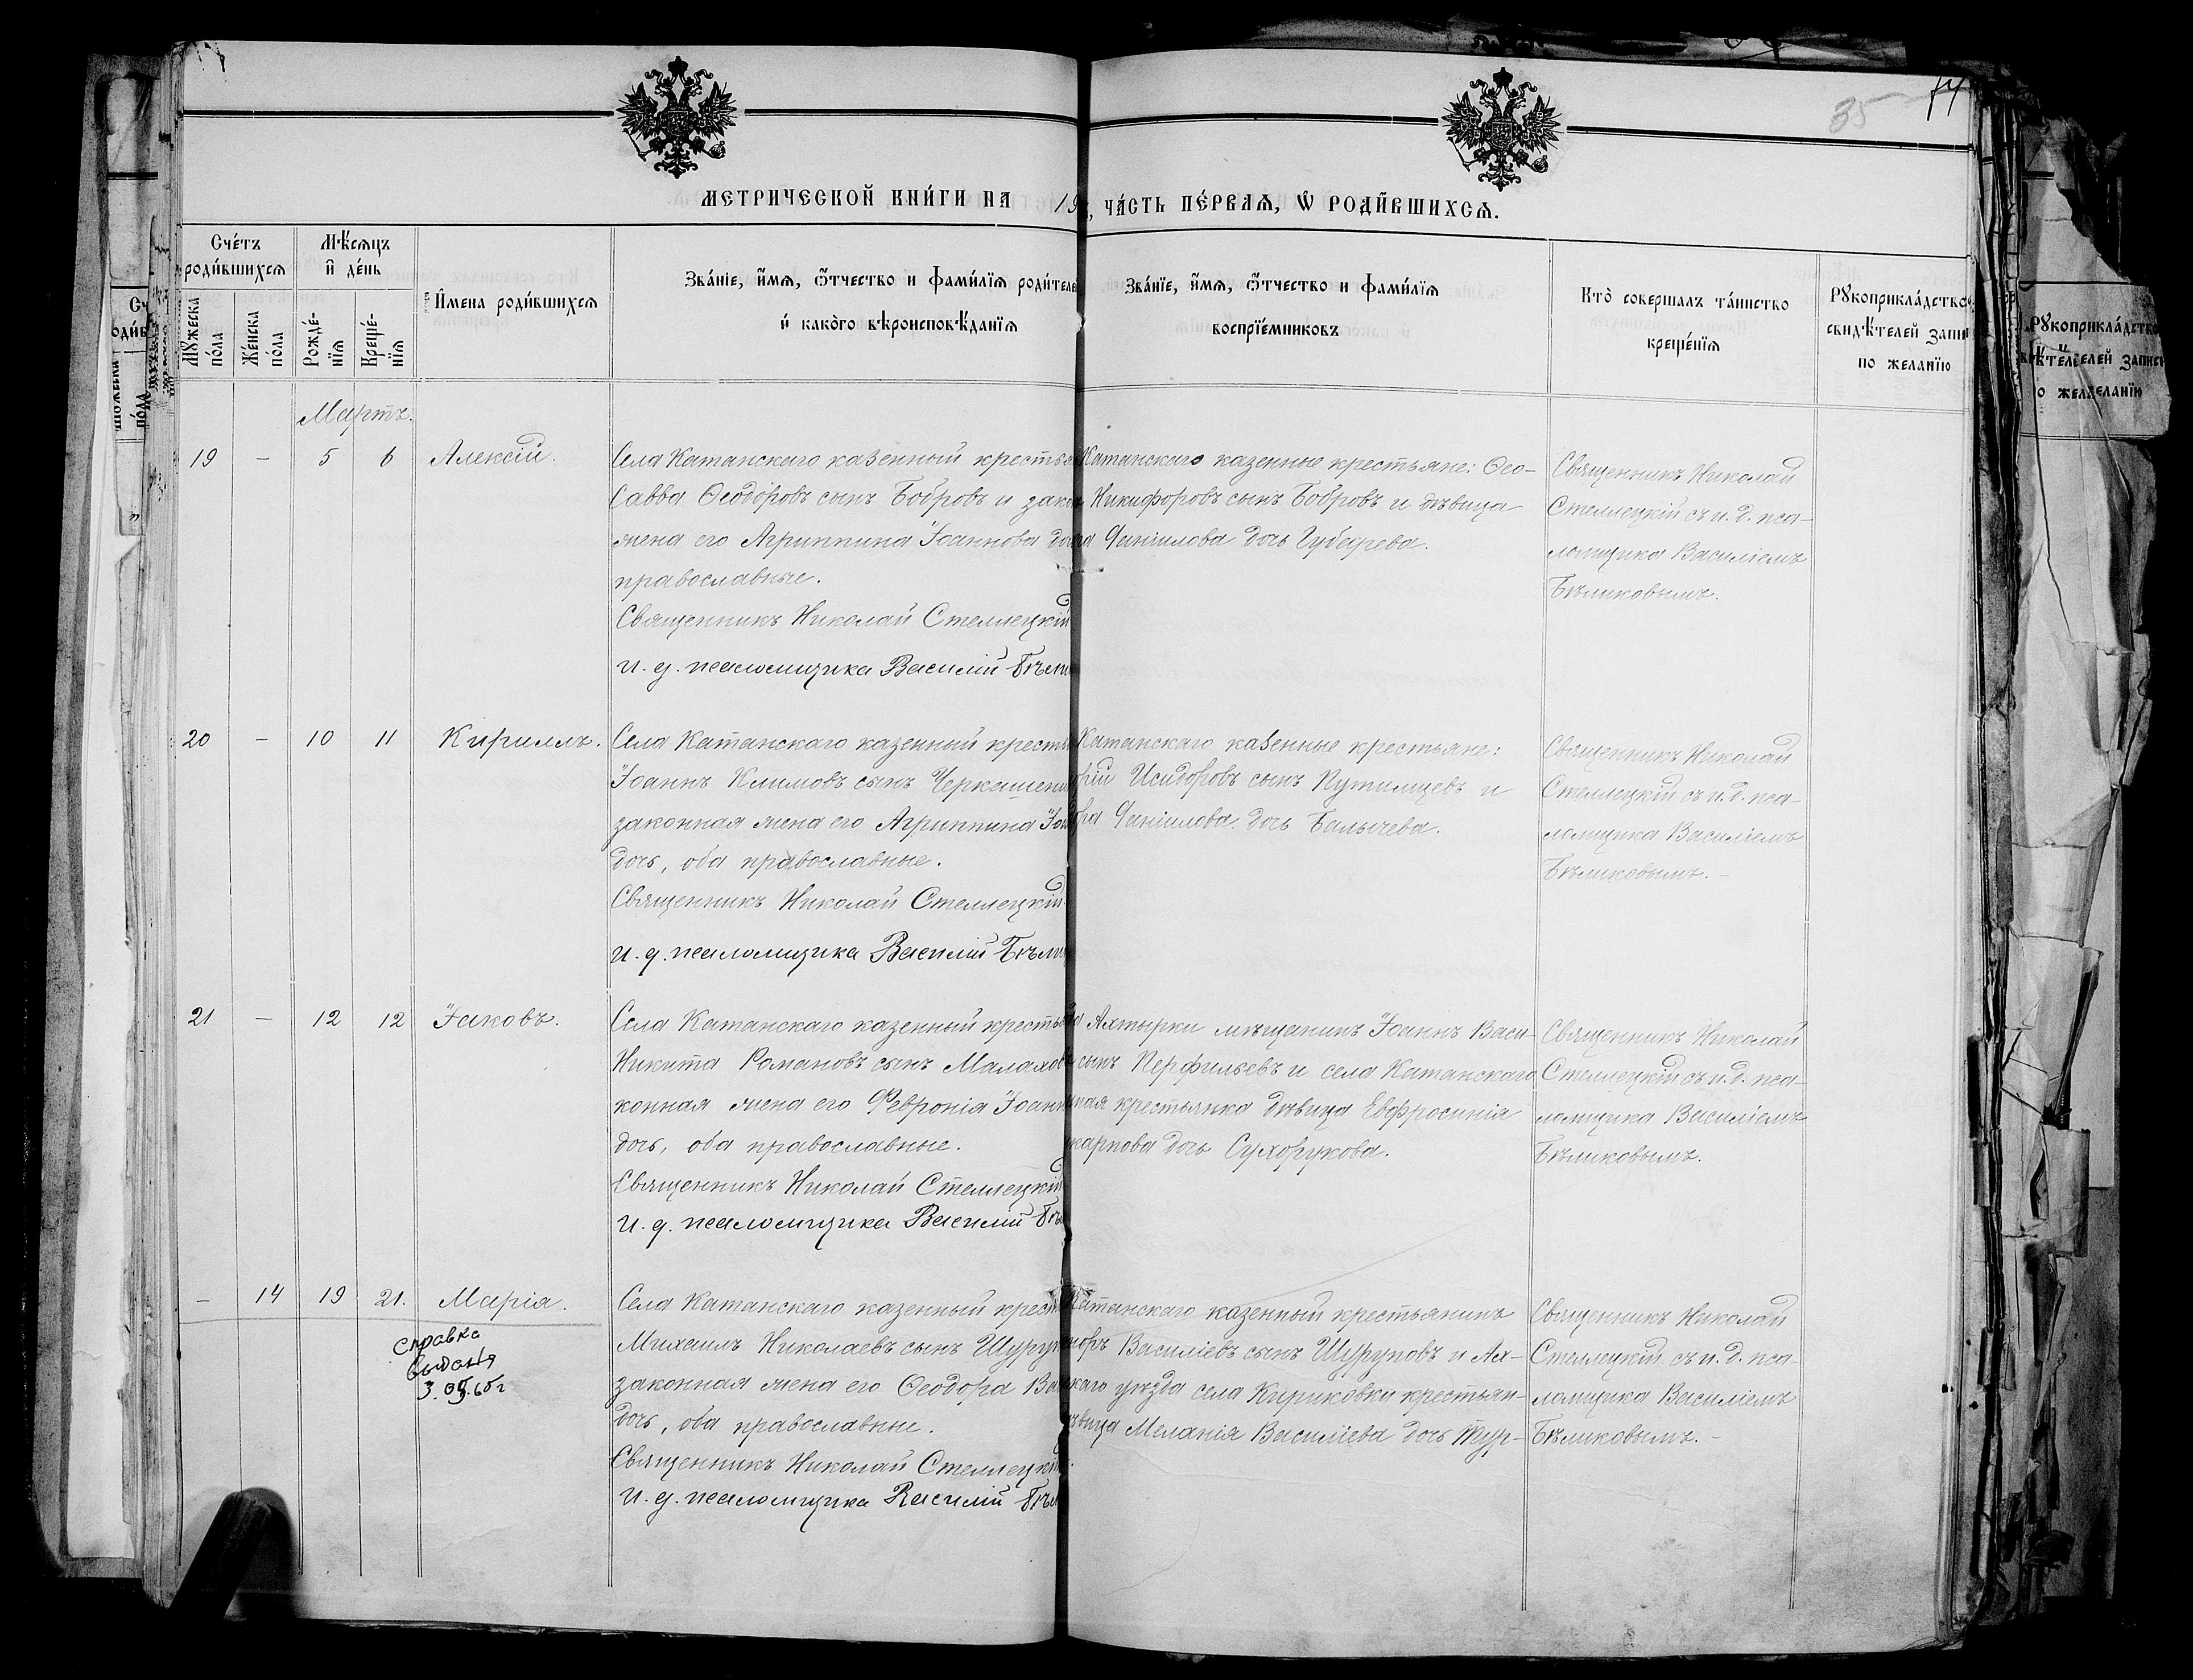 35 74
МЕТРИЧЕСКОЙ КНИ́ГИ НА 19 , ЧА́СТЬ ПЕ́РВАѦ, Ѡ҆ РОДИ́ВШИХСѦ.
Сче́тъ роди́вшихсѧ
Мꙋ́жеска по́ла
Же́нска по́ла
Мѣ́сѧцъ и҆ де́нь
Рожде́нїѧ
Креще́нїѧ
И҆мена роди́вшихсѧ
Зва́нїе, и҆́мѧ, ѻ҆́тчество и фами́лїѧ роди́теле
и҆ како́го вѣроисповѣ́данїѧ
Зва́нїе, и҆́мѧ, ѻ҆́тчество и фами́лїѧ
воспрїе́мниковъ
Кто̀ соверша́лъ та́инство
креще́нїѧ
Рꙋкоприкла́дство
свидѣ́телей запи
по желанїю
Мартъ.
19 — 5 6 Алексій.
Села Катанскаго казенный крестья
Савва Ѳеодоровъ сынъ Бобровъ и зако
жена его Агриппина Іоаннова до
православные.
Священникъ Николай Стеллецкій
и. д. псаломщика Василій Бѣли
Катанскаго казенные крестьяне: Ѳео-
Никифоровъ сынъ Бобровъ и дѣвица
Даніилова дочь Губарева.
Священникъ Николай
Стеллецкій съ и. д. пса-
ломщика Василіемъ
Бѣликовымъ.
20 — 10 11 Кириллъ.
Села Катанскаго казенный крестья
Іоаннъ Климовъ сынъ Черкашени
законная жена его Агриппина Іоа
дочь, оба православные.
Священникъ Николай Стеллецкій
и. д. псаломщика Василій Бѣли
Катанскаго казенные крестьяне:
орій Исидоровъ сынъ Путилцевъ и
ра Даніилова дочь Балычева.
Священникъ Николай
Стеллецкій съ и. д. пса-
ломщика Василіемъ
Бѣликовымъ. —
21 — 12 12 Іаковъ.
Села Катанскаго казенный крестья
Никита Романовъ сынъ Малахов
конная жена его Февронія Іоанн
дочь, оба православные.
Священникъ Николай Стеллецкій
и. д. псаломщика Василій Бѣ
Ахтырки мѣщанинъ Іоаннъ Васи-
сынъ Перфильевъ и села Катанскаго
ная крестьянка дѣвица Евфросинія
карпова дочь Сухорукова.
Священникъ Николай
Стеллецкій съ и. д. пса-
ломщика Василіемъ
Бѣликовымъ.
— 14 19 21. Марія.
справка
выдана
3.05.65г
Села Катанскаго казенный крест
Михаилъ Николаевъ сынъ Шуруп
законная жена его Ѳеодора Ва
дочь, оба православные.
Священникъ Николай Стеллецкій
и. д. псаломщика Василій Бѣл
Катанскаго казенный крестьянинъ
норъ Василіевъ сынъ Шуруповъ и Ах-
каго уѣзда села Кириковки крестьян-
ѣвица Меланія Василіева дочь Тур-
Священникъ Николай
Стеллецкій съ и. д. пса-
ломщика Василіемъ
Бѣликовымъ. —